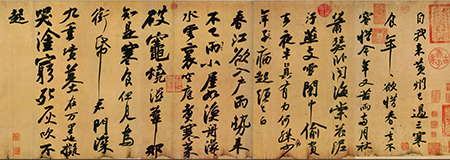 自我來黃州已過三寒
食年年欲惜春春去不
容惜今年又苦雨兩月秋
蕭瑟卧聞海棠花泥
汙燕支雪闇中偷負
去夜半真有力何殊少
年子病起頭已白
春江欲入戶雨勢來
不已雨小屋如漁舟濛濛
水雲裏空庖煮寒菜
破竈燒濕葦那
知是寒食但見烏
銜帋君門深
九重墳墓在万里也擬
哭塗窮死灰吹不
起